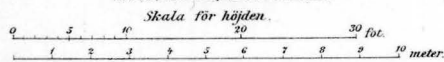 Skala för höjden.
0 5 10 20 30 fot.
1 2 3 4 5 6 7 8 9 10 meter.